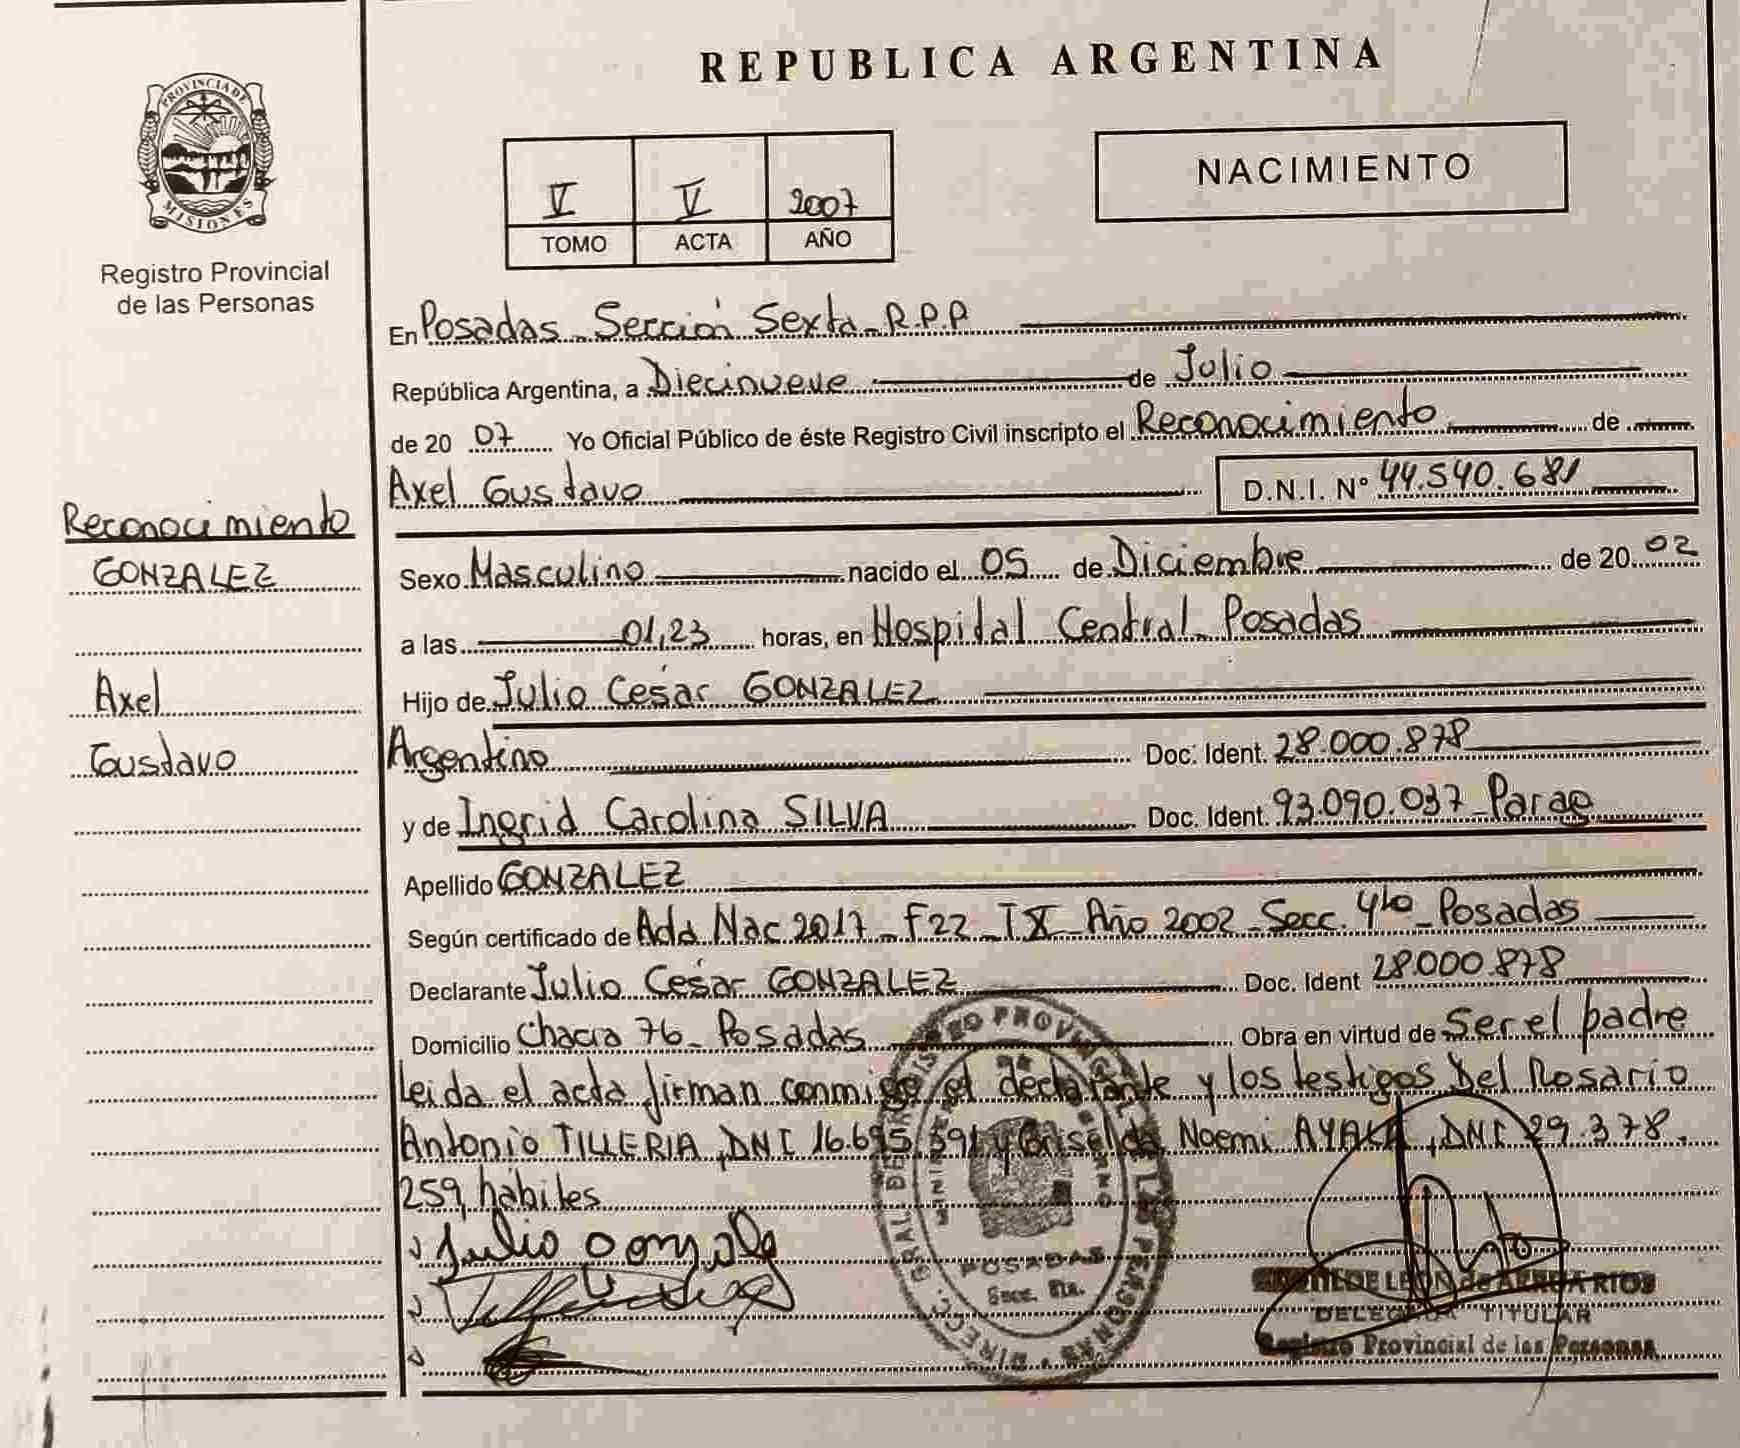 REPUBLICA ARGENTINA
PROVINCIA DE MISIONES
Registro Provincial
de las Personas
V V 2007
TOMO ACTA AÑO
NACIMIENTO
En Posadas Sección Sexta R.P.P
República Argentina, a Diecinueve de Julio
de 2007 Yo Oficial Público de éste Registro Civil inscripto el Reconocimiento de
Axel Gustavo D.N.I. Nº 44.540.681
Reconocimiento
GONZALEZ
Axel
Gustavo
Sexo Masculino nacido el 05 de Diciembre de 2002
a las 01,23 horas, en Hospital Central Posadas
Hijo de Julio Cesár GONZALEZ
Argentino Doc. Ident. 28.000.878
y de Ingrid Carolina SILVA Doc. Ident. 93.090.037 Parag
Apellido GONZALEZ
Según certificado de Acta Nac 2017 - F22 - T X - Año 2002 - Secc. 4to - Posadas
Declarante Julio Cesár GONZALEZ Doc. Ident 28.000.878
Domicilio Chacra 76 - Posadas Obra en virtud de Ser el padre
leida el acta firman conmigo el declarante y los testigos Del Rosario
Antonio TILLERIA, DNI 16.695.391 y Griselda Noemi AYALA, DNI 29.378.
259, habiles
Julio Gonzale
DIRECC. GRAL DEL REGISTRO PROVINCIAL DE LAS PERSONAS
POSADAS
Secc. 6ta.
DE LEÓN de RIOS
DELEGADA TITULAR
Registro Provincial de las Personas